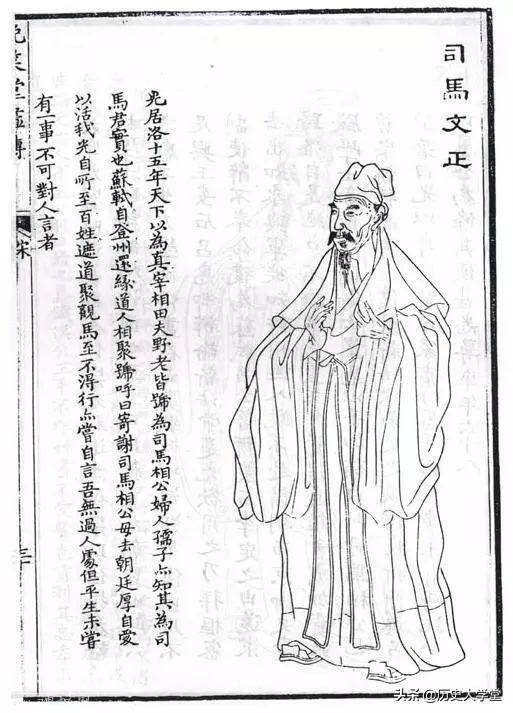 司馬文正
光居洛十五年天下以為真宰相田夫野老皆號為司馬相公婦人孺子亦知其為司
馬君實也蘇軾自登州還緣道人相聚號呼曰寄謝司馬相公毋去朝廷厚自愛
以活我光自所至百姓遮道聚觀馬至不淂行亦嘗自言吾無過人處但平生未嘗
有一事不可對人言者
宋
头条 @历史大学堂